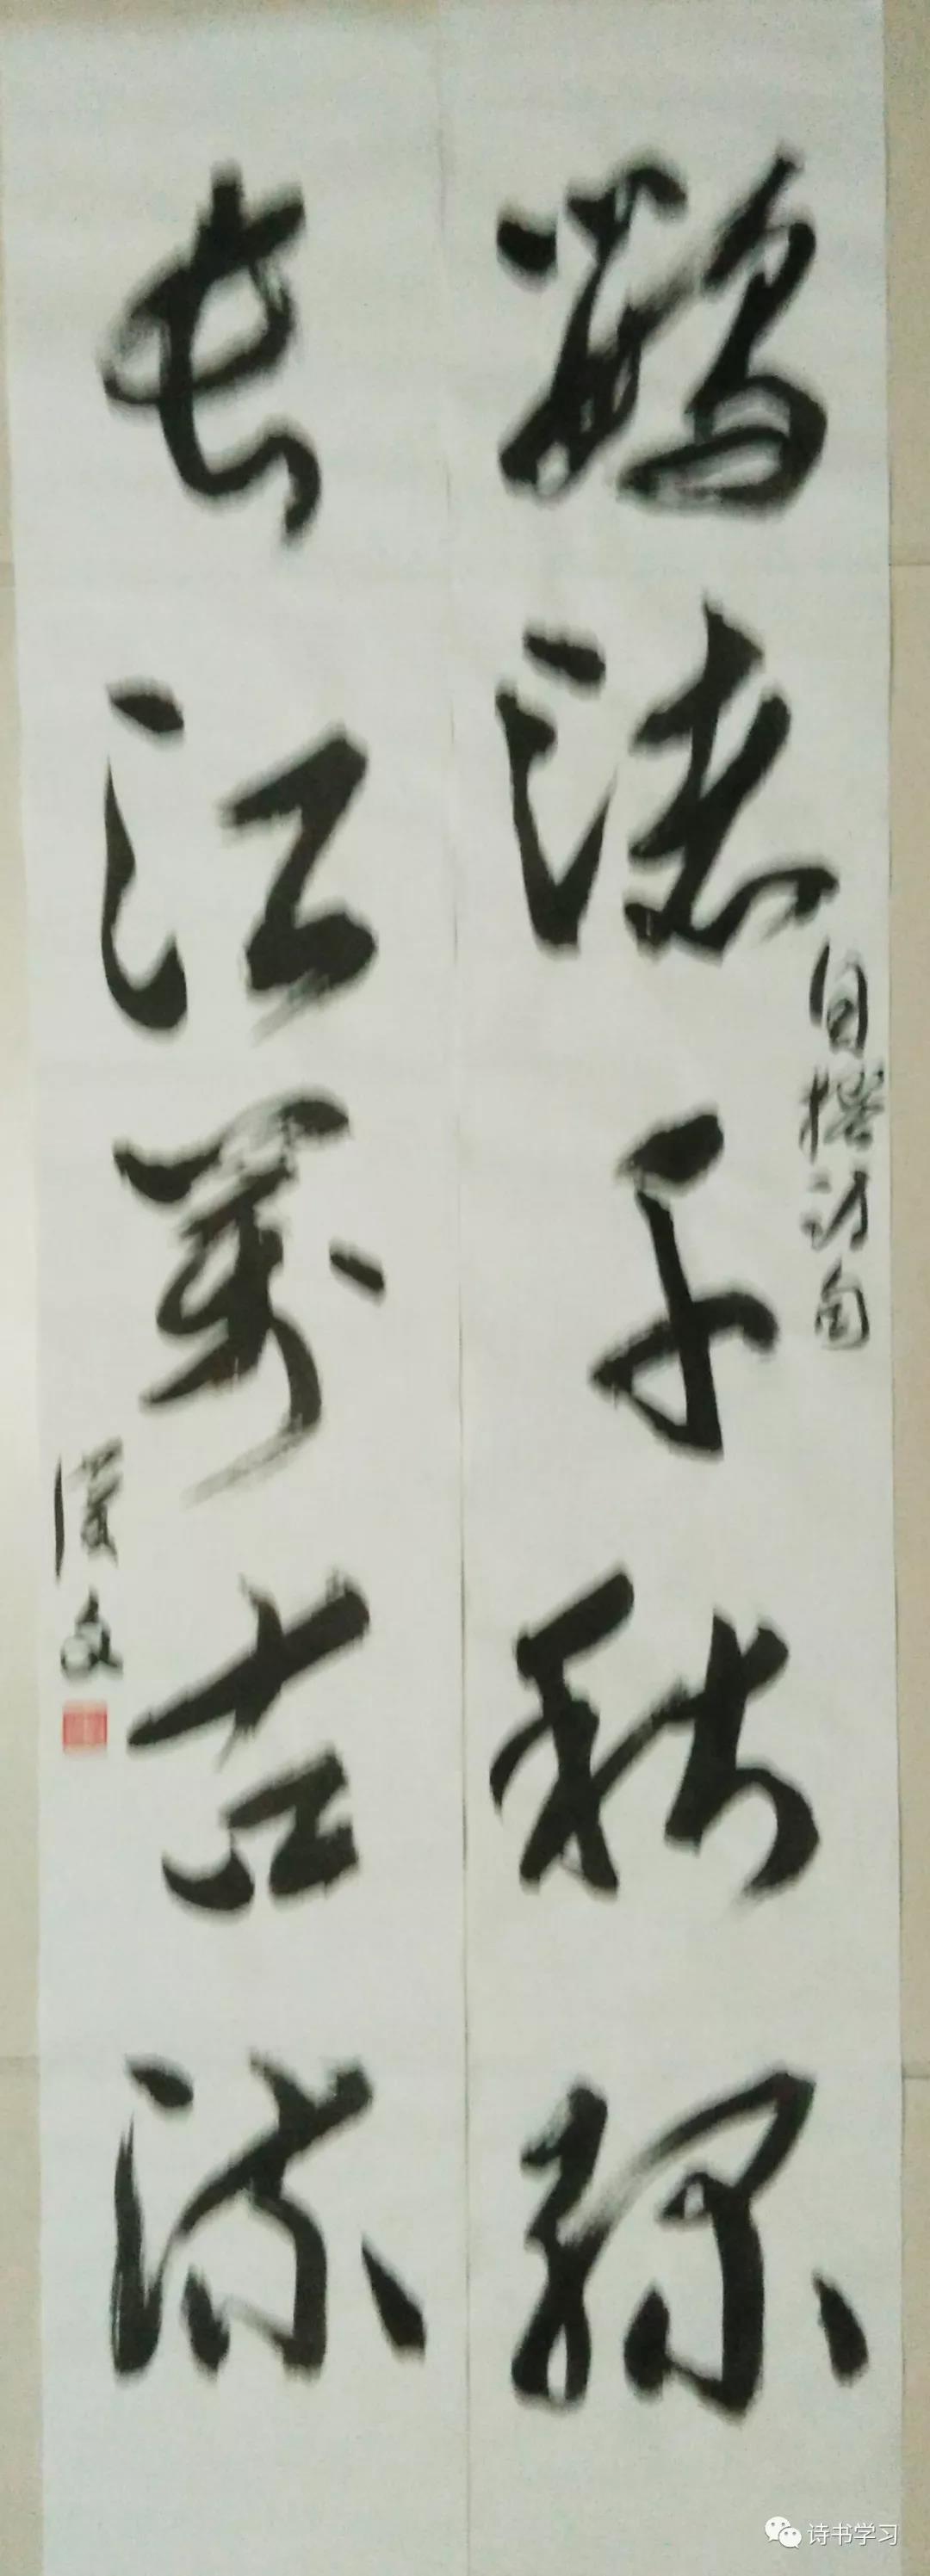 鹦渚千秋绿
自撰诗句
长江万古流
汉文
诗书学习